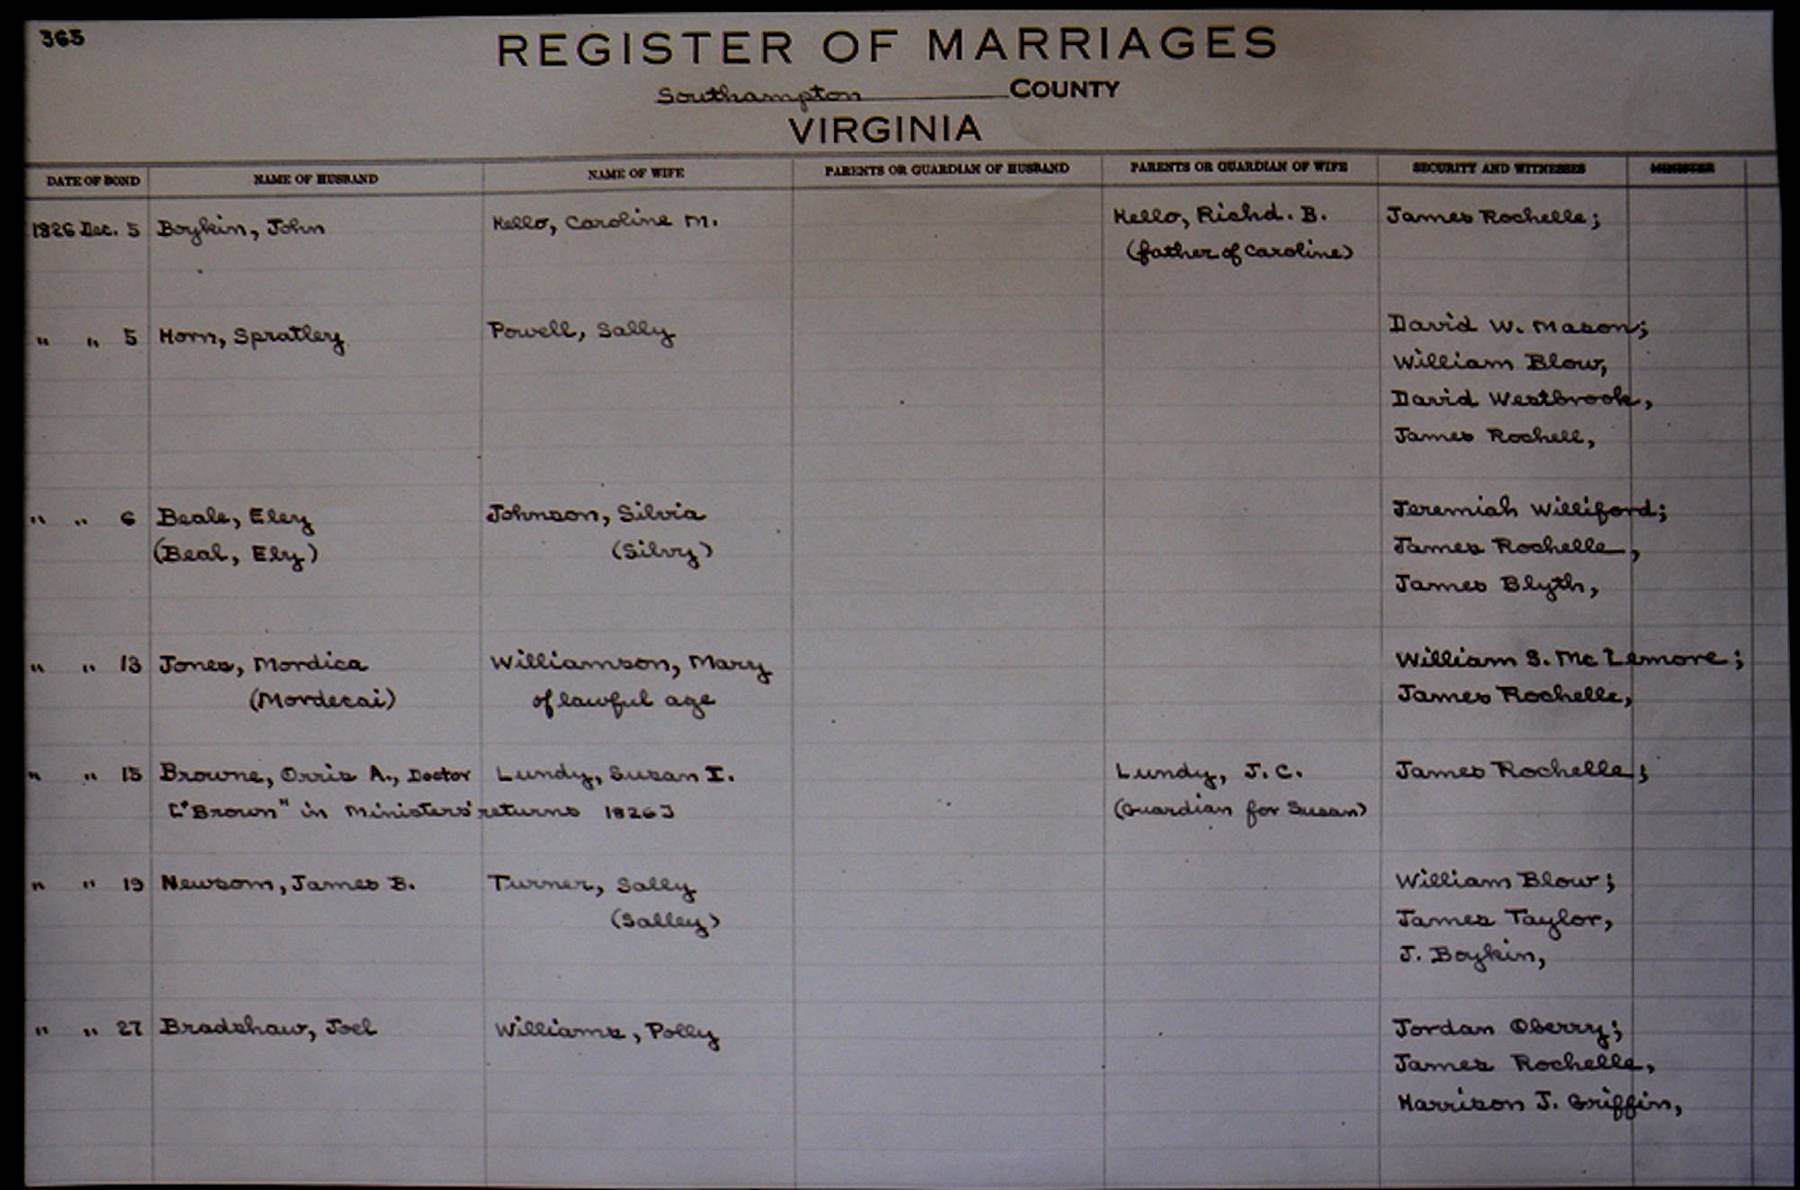 365
REGISTER OF MARRIAGES
Southampton COUNTY
VIRGINIA
DATE OF BOND NAME OF HUSBAND NAME OF WIFE PARENTS OR GUARDIAN OF HUSBAND PARENTS OR GUARDIAN OF WIFE SECURITY AND WITNESSES MINISTER
1826 Dec. 5 Boykin, John Kello, Caroline M. Kello, Richd. B. James Rochelle;
(father of Caroline)
" " 5 Horn, Spratley Powell, Sally David W. Mason;
William Blow,
David Westbrook,
James Rochell,
" " 6 Beale, Eley Johnson, Silvia Jeremiah Williford;
(Beal, Ely) (Silvy) James Rochelle,
James Blyth,
" " 13 Jones, Mordica Williamson, Mary William S. McLemore;
(Mordecai) of lawful age James Rochelle,
" " 15 Browne, Orris A., Doctor Lundy, Susan I. Lundy, J. C. James Rochelle;
["Brown" in Ministers' returns 1826] (Guardian for Susan)
" " 19 Newsom, James B. Turner, Sally William Blow;
(Salley) James Taylor,
J. Boykin,
" " 27 Bradshaw, Joel Williams, Polly Jordan Oberry;
James Rochelle,
Harrison J. Griffin,